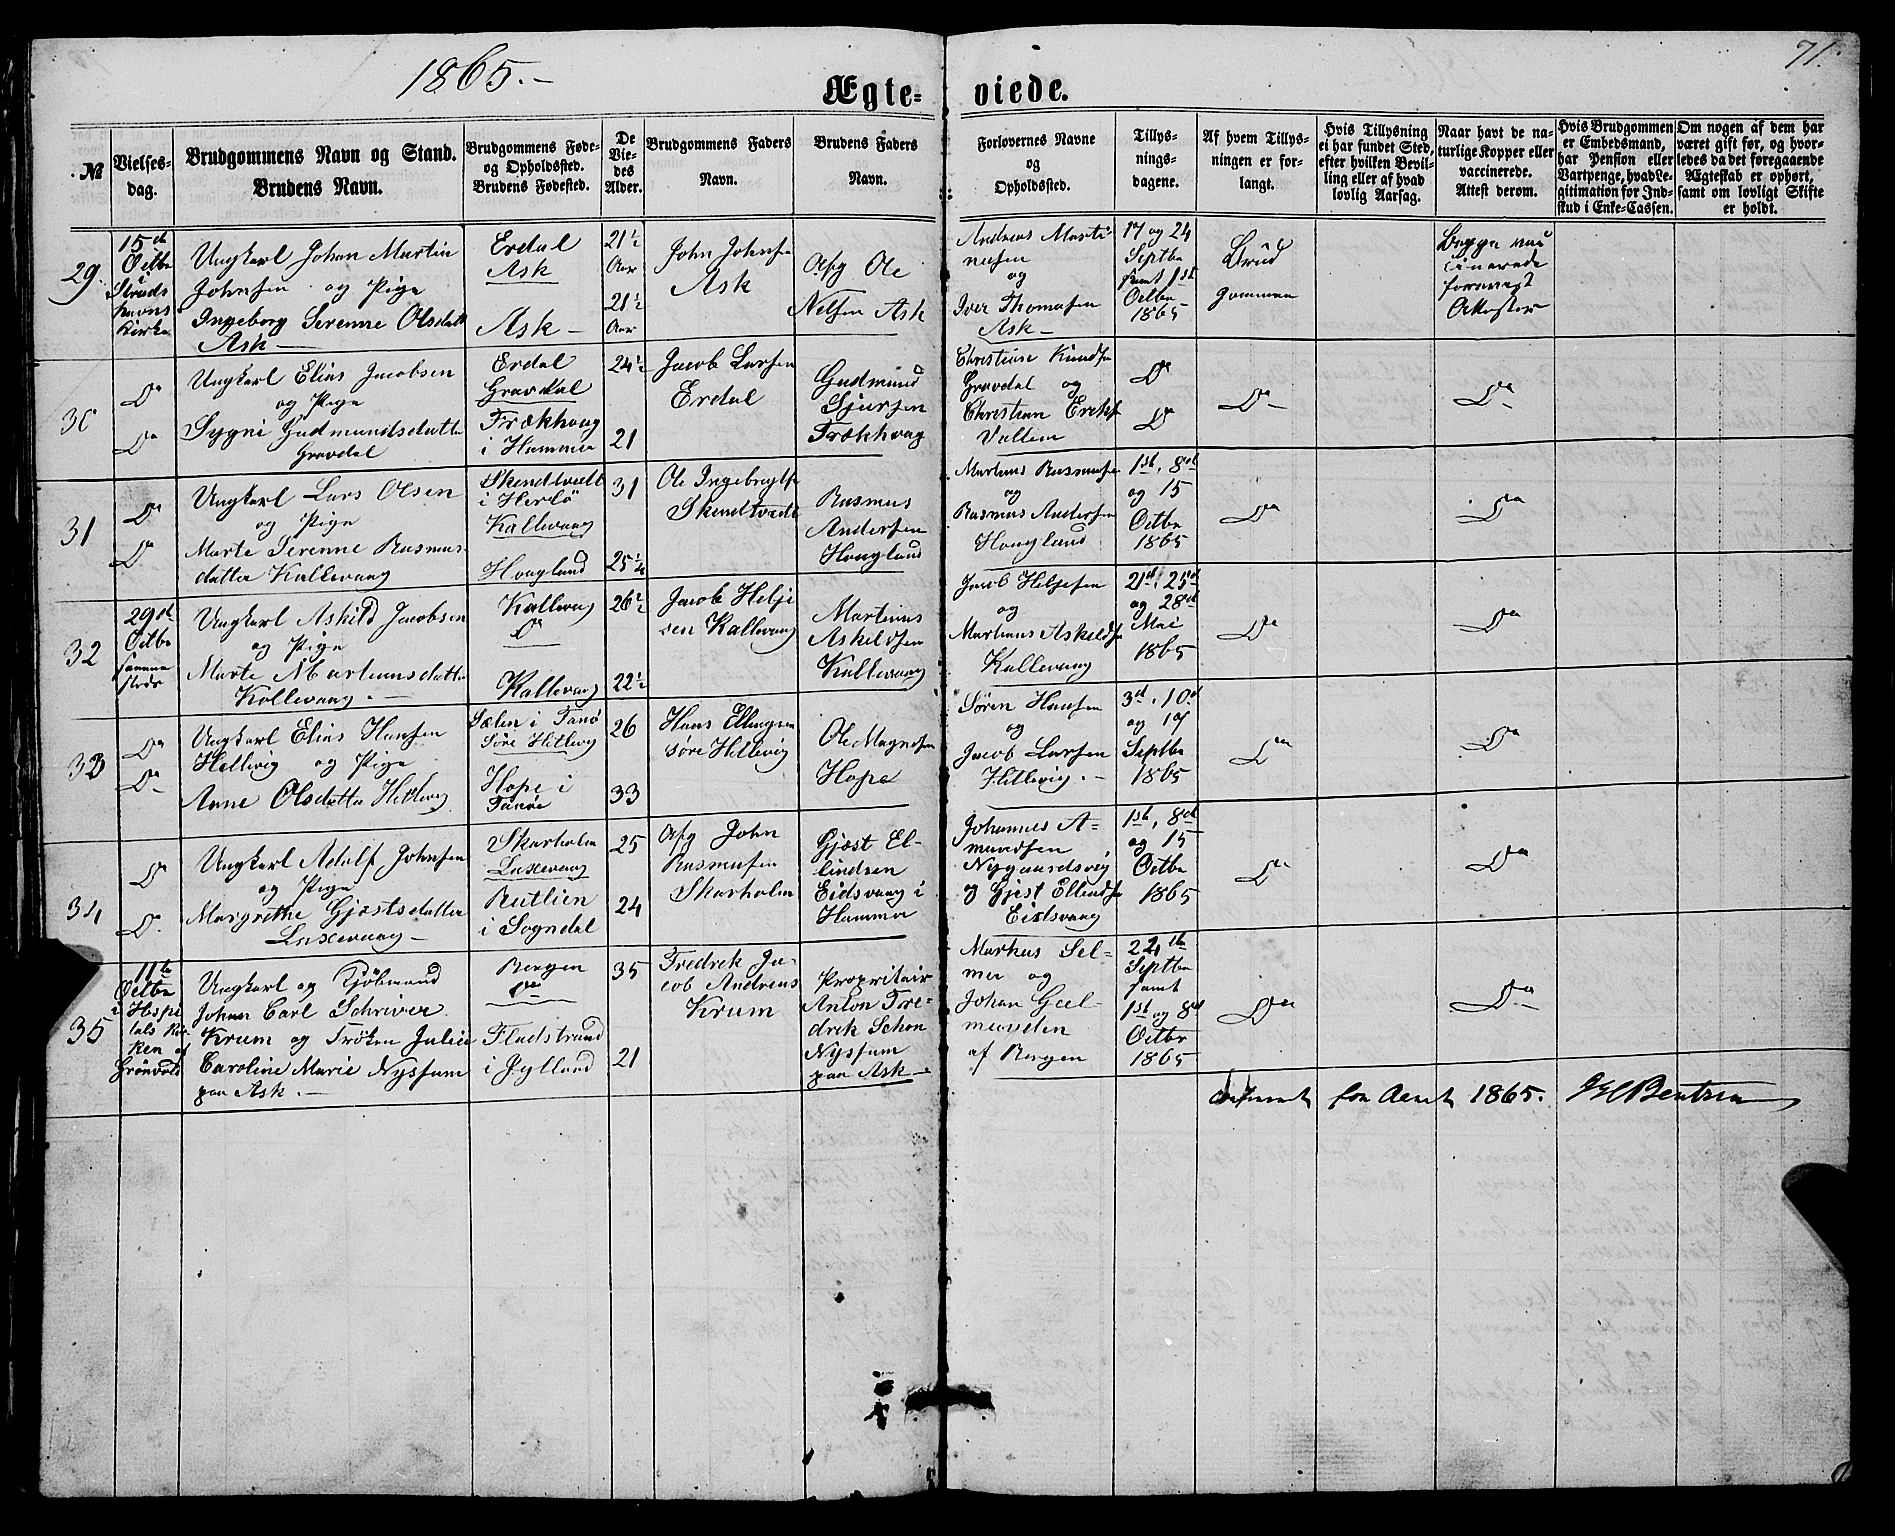 1865.-
71.
Ægte-
viede.
№
Vielses-
dag.
Brudgommens Navn og Stand.
Brudens Navn.
Brudgommens Føde-
og Opholdssted.
Brudens Fødested.
De
Vie-
des
Alder.
Brudgommens Faders
Navn.
Brudens Faders
Navn.
Forlovernes Navne
og
Opholdssted.
Tillys-
nings-
dagene.
Af hvem Tillys-
ningen er for-
langt.
Hvis Tillysning
ei har fundet Sted,
efter hvilken Bevil-
ling eller af hvad
lovlig Aarsag.
Naar havt de na-
turlige Kopper eller
vaccinerede.
Attest derom.
Hvis Brudgommen
er Embedsmand,
har Pension eller
Vartpenge, hvad Le-
gitimation for Ind-
skud i Enke-Cassen.
Om nogen af dem har
været gift før, og hvor-
ledes da det foregaaende
Ægteskab er ophørt,
samt om lovligt Skifte
er holdt.
29.
15de
Octbr
Struds
havns
Kirke
Ungkarl Johan Martin
Johnsen og Pige
Ingeborg Serenne Olsdatter
Ask -
Erdal
Ask
Ask -
21½
Aar
21½
Aar
John Johnsen
Ask
Afg Ole
Nelsen Ask
Andreas Marti-
nusen
og
Iver Thomasen
Ask -
17 og 24
Septbr
samt 1st
Octbr
1865
Brud
gommen
Begge vac
cinerede
forevist
Attester
30
Do
Do
Ungkarl Elias Jacobsen
og Pige
Sygni Gudmundsdatter
Gravdal
Erdal
Gravdal
Trækhaug
i Hammer
24½
21
Jacob Larsen
Erdal
Gudmund
Sjursen
Trækhoug
Christian Knudsen
Gravdal og
Christian Eriks
Vallem
Do
Do
Do -
Do -
31
Do
Do
Ungkarl Lars Olsen
og Pige
Marte Serenne Rasmus-
datter Kallevaag
Skendtvedt
i Herlö
Kallevaag
Hougland
31
25¼
Ole Ingebregts
Skendtvedt
Rasmus
Andersen
Hougland
Martinus Rasmusen
og
Rasmus Andersen
Hougland
1st, 8de
og 15
Octbr
1865
Do
Do
32
29de
Octbr
samme
steds
Ungkarl Askild Jacobsen
og Pige
Marte Martinusdatter
Kallevaag. -
Kallevaag
Do
Kallevaag
26½
22½
Jacob Helje
sen Kallevaag
Martinus
Askeldsen
Kallevaag
Jacob Heljesen
og
Martinus Askelds
Kallevaag
21de, 25de
og 28de
Mai
1865
Do
Do
33
Do
Do
Ungkarl Elias Hansen
Hetlevig og Pige
Anne Olsdatter Hetlevig
Sælen i Fanö
Söre Hetlevig
Hope i
Fanöe
26
33
Hans Ellingsen
Söre Hetlevig
Ole Magnesen
Hope
Sören Hansen
og
Jacob Larsen
Hetlevig. -
3de, 10de
og 17
Septbr
1865
Do
Do
34
Do
Do
Ungkarl Adolf Johnsen
og Pige
Margrethe Gjæstsdatter
Laxevaag -
Skarholm
Laxevaag
Rutlien
i Sogndal
25
24
Afg John
Rasmusen
Skarholm
Gjæst El-
lindsen
Eidsvaag i
Hammer
Johannes A-
mundsen
Nygaardsvig
og Gjest Ellends
Eidsvaag
1st, 8de
og 15
Octbr
1865
Do
Do
35
11te
Octbr
i Hospi
tals Kir
ken af
Grönvold
Ungkarl og Kjöbmand
Johan Carl Schriver
Krum og Fröken Julie
Caroline Marie Nyssum
paa Ask. -
Bergen
Do
Fladstrand
i Jylland
35
21
Fredrik Ja-
cob Andreas
Krum
Propritair
Anton Fre-
drik Schou
Nyssum
paa Ask -
Markus Sel-
mer og
Johan Geel-
muyden
af Bergen
24de
Septbr
samt
1st og 8de
Octbr
1865
Do
Do -
for Aaret 1865. Bentsen